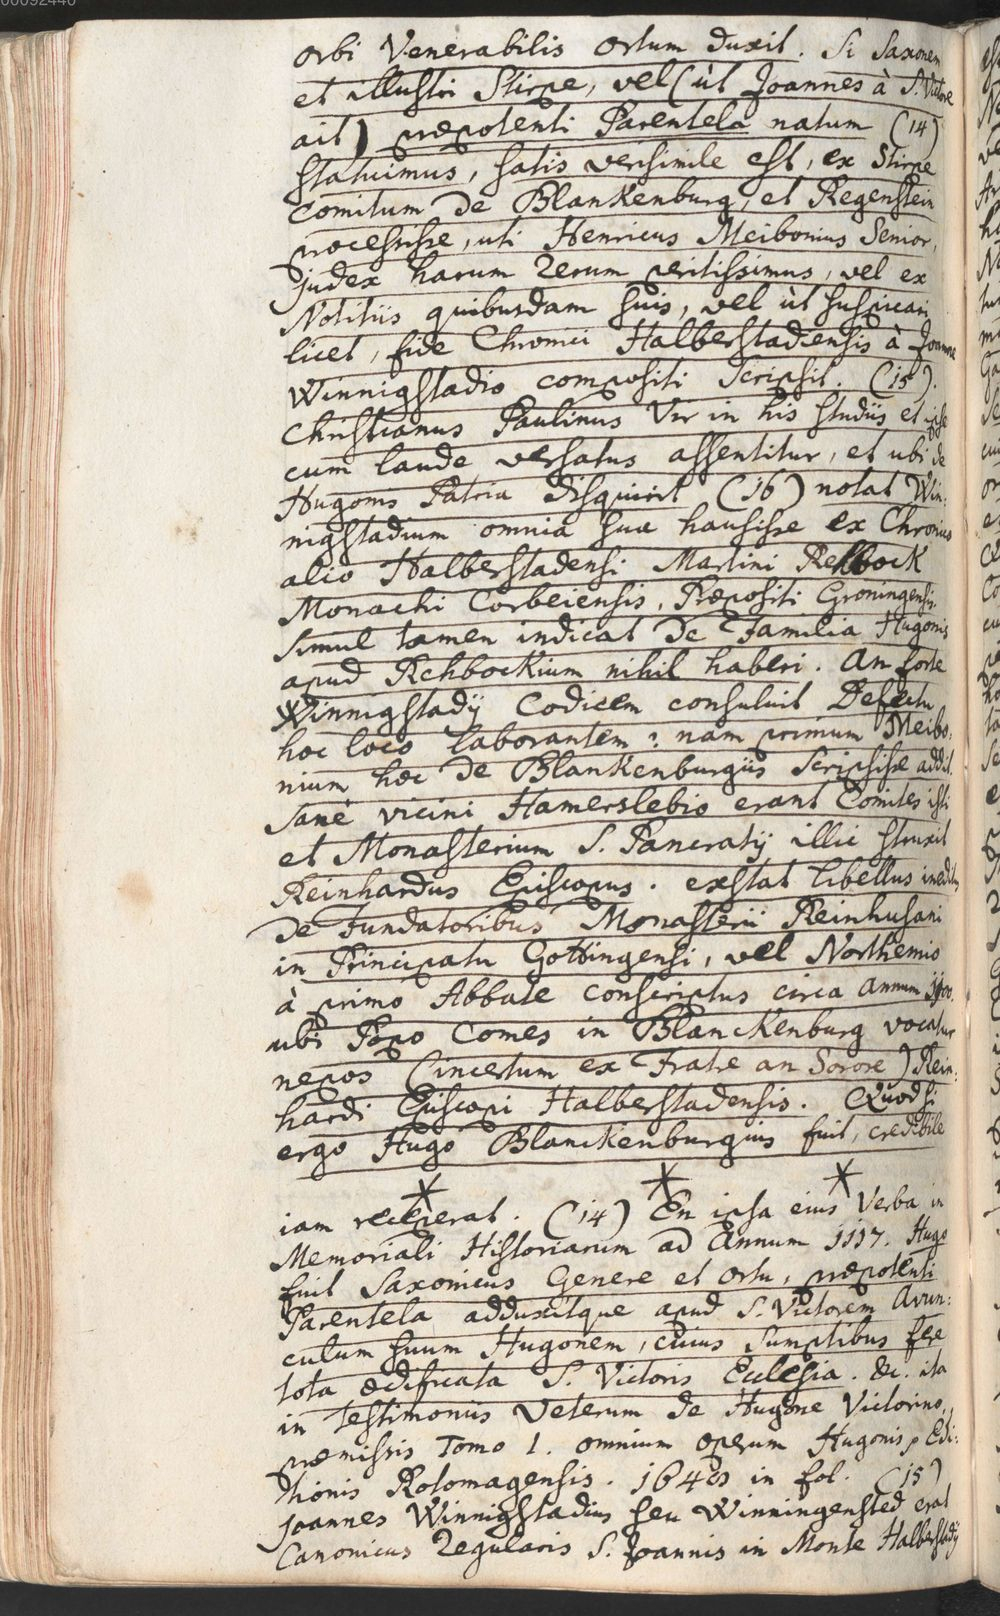 00092440
orbi Venerabilis ortum duxit. Si Saxonem
et illustri Stirpe, vel (ùt Joannes à S. Victore
ait) præpotenti Parentela natum (14)
statuimus, satis verisimile est, ex Stirpe
Comitum de Blankenburg, et Regenstein
processisse, uti Henricus Meibomius Senior,
judex harum rerum peritissimus, vel ex
Notitiis quibusdam suis, vel ùt suspicari
licet, fide Chronici Halberstadiensis à Joanne
Winnigstadio compositi scripsit. (15).
Christianus Paulinus Vir in his studiis et ipse
cum laude versatus assentitur, et ubi de
Hugonis Patria disquirit (16) notat Win:
nigstadium omnia sua hausisse ex Chronico
alio Halberstadensi Martini Rehbock
Monachi Corbeiensis, Præpositi Groningensis.
simul tamen indicat de Familia Hugonis
apud Rehbockium nihil haberi. An forte
Winnigstadij Codicem consuluit Defectu
hoc loco laborantem? nam primum Meibo:
nium hoc de Blankenburgiis scripsisse addit.
sanè vicini Hamerslebio erant Comites isti
et Monasterium S. Pancratij illic struxit
Reinhardus Episcopus. exstat libellus ineditus
de Fundatoribus Monasterii Reinhusani
in Principatu Gottingensi, vel Northemio
à primo Abbate conscriptus circa annum 1100.
ubi Popo Comes in Blanckenburg vocatur
nepos (incertum ex Fratre an Sorore) Rein:
hardi Episcopi Halberstadensis. Quodsi
ergo Hugo Blanckenburgius fuit, credibile
* * *
iam receperat. (14) En ipsa eius Verba in
Memoriali Historiarum ad Annum 1117. Hugo
fuit Saxonicus Genere et ortu, præpotenti
Parentela adduxitque apud S. Victorem Avun:
culum suum Hugonem, cuius sumptibus fere
tota ædificata S. Victoris Ecclesia. &c. ita
in Testimoniis Veterum de Hugone Victorino,
præmissis Tomo 1. omnium operum Hugonis, Edi:
tionis Rotomagensis. 1648 in fol. (15)
Joannes Winnigstadius seu Winningensted erat
Canonicus Regularis S. Joannis in Monte Halberstadij